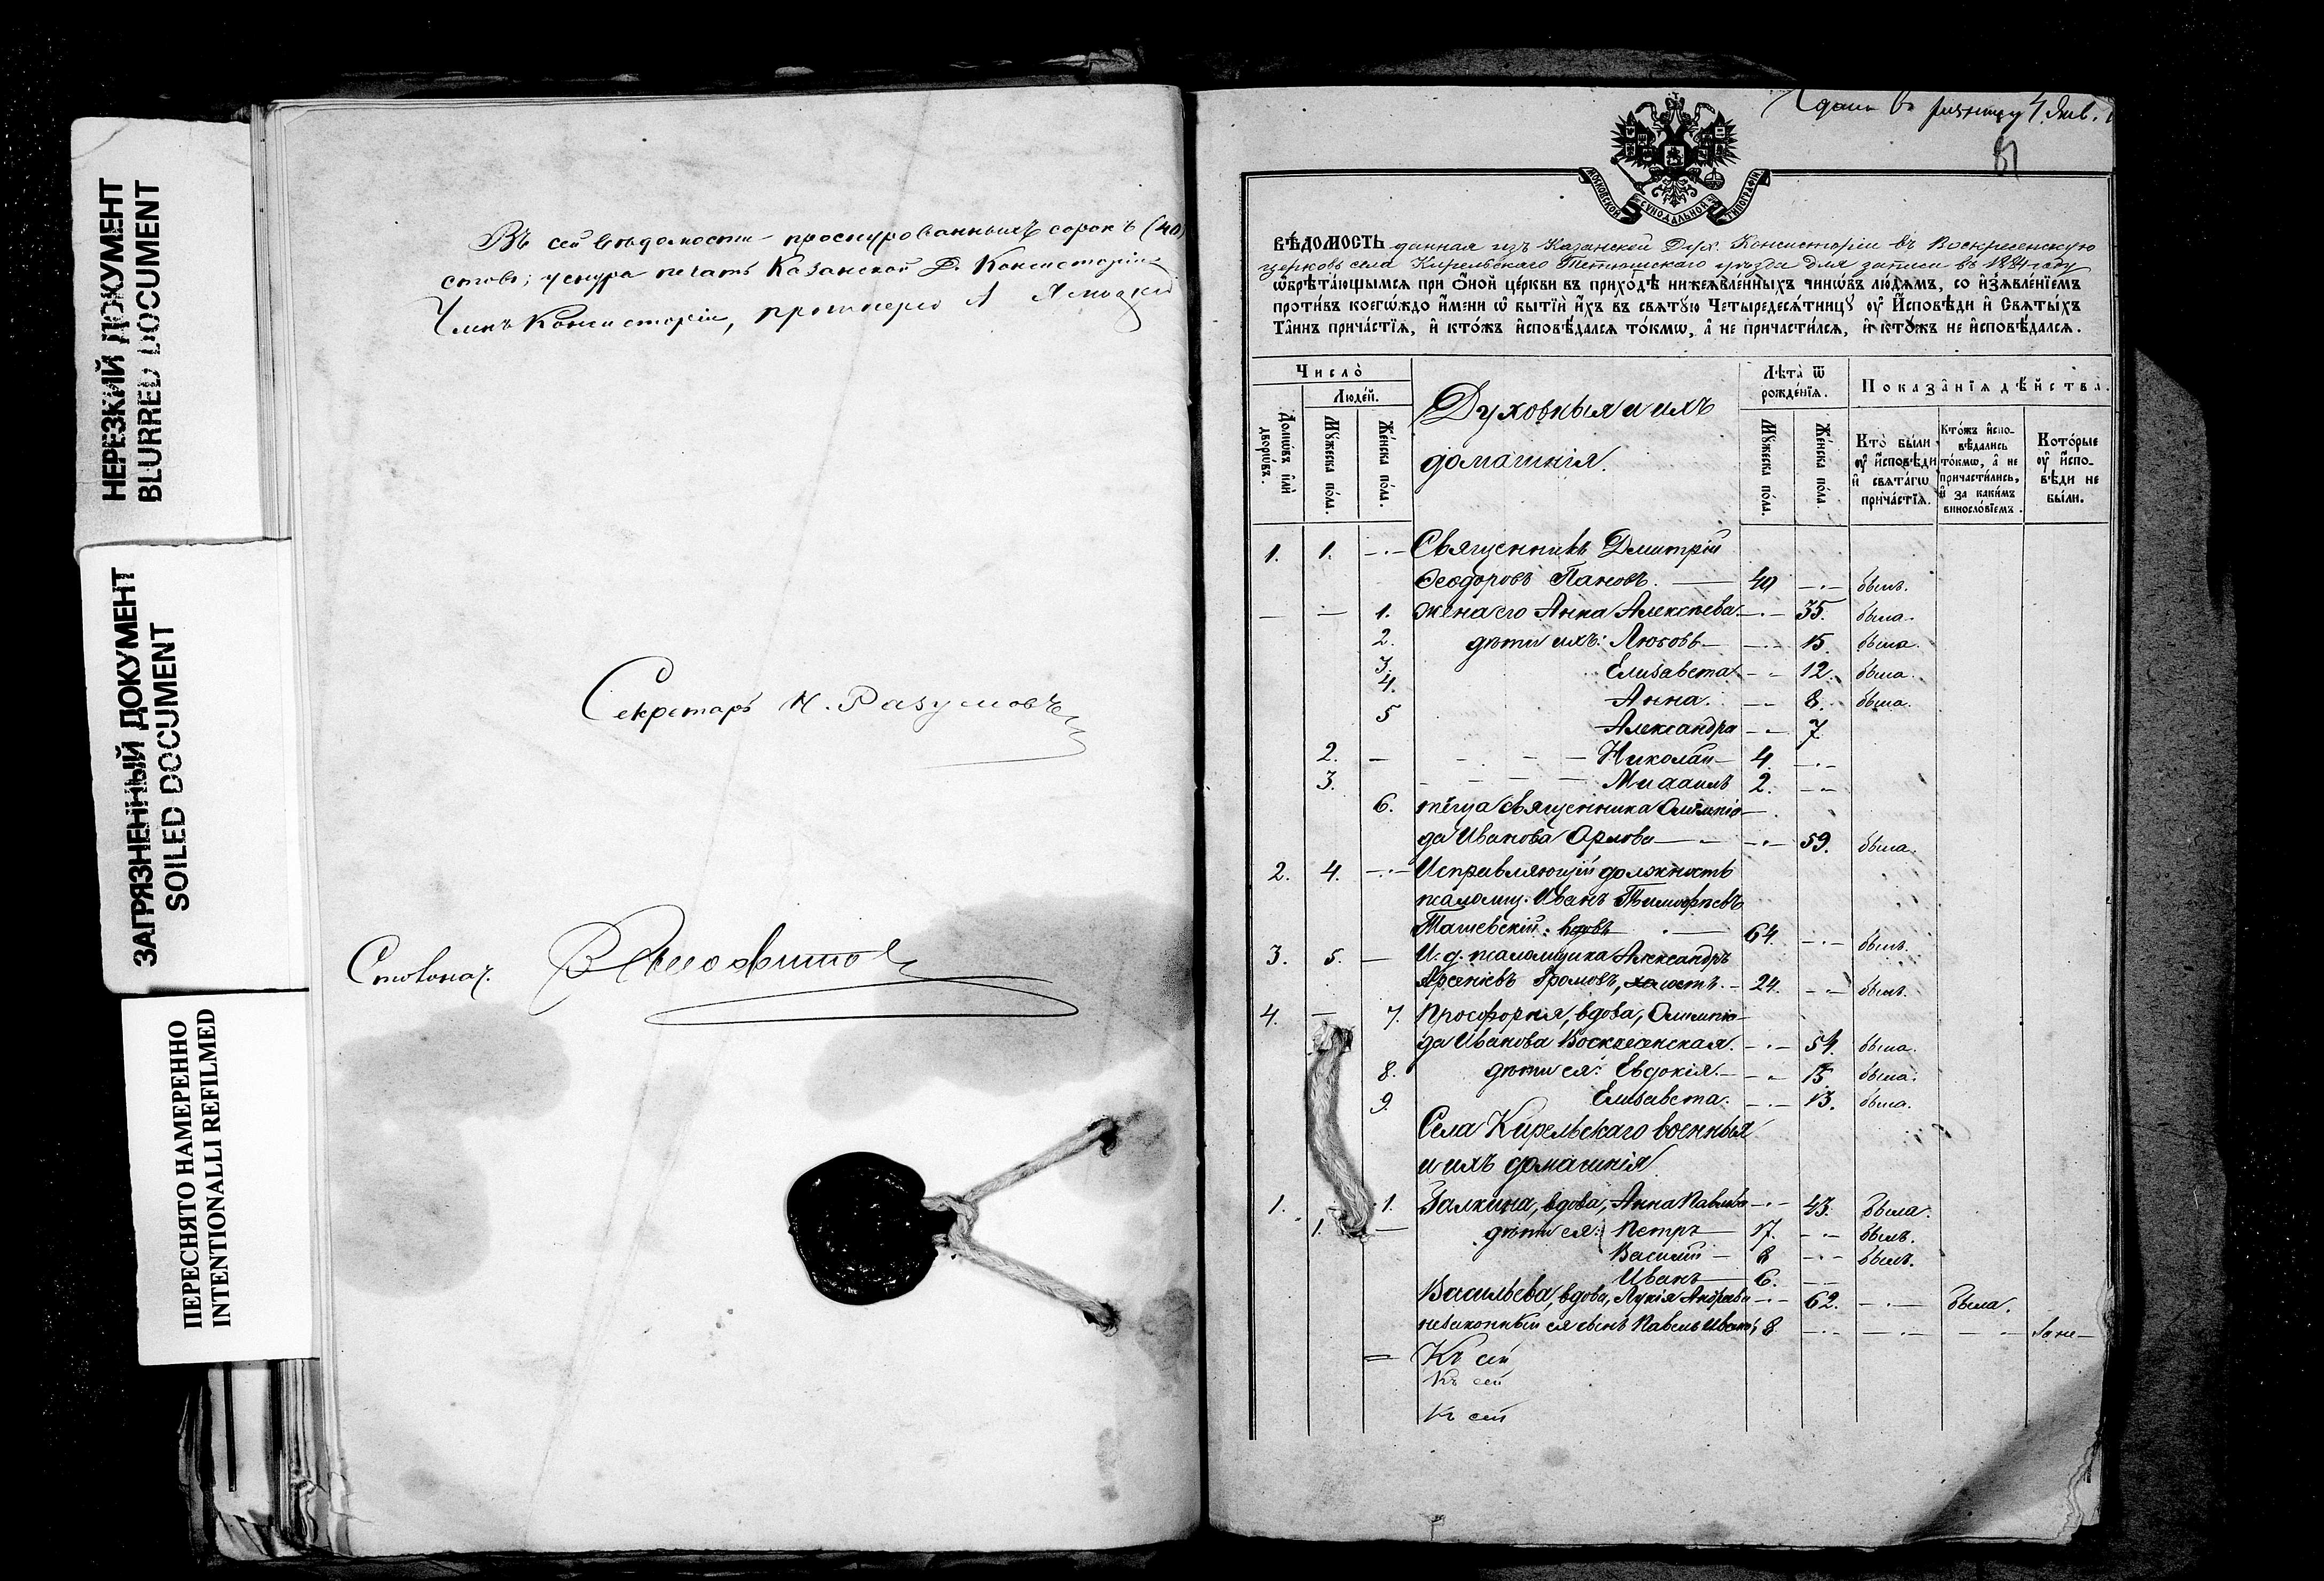 НЕРЕЗКИЙ ДОКУМЕНТ
BLURRED DOCUMENT
ЗАГРЯЗНЕННЫЙ ДОКУМЕНТ
SOILED DOCUMENT
ПЕРЕСНЯТО НАМЕРЕННО
INTENTIONALLI REFILMED
Въ сей вѣдомости прошнурованныхъ сорокъ (40)
стовъ; у снура печать Казанской Д. Консисторіи
Членъ Консисторіи, протоіерей А
Секретарь Н. Разумовъ
Столонач.
4 Янв.
81
МОСКОВСКОЙ СѴНОДАЛЬНОЙ ТИПОГРАФІИ
ВѢДОМОСТЬ данная изъ Казанской Дух. Консисторіи въ Воскресенскую
церковь села Кирельскаго Тетюшскаго уѣзда для записи въ 1884 году
ѡ҆брѣта́ющымсѧ при ѻ҆́ной це́ркви въ прихо́дѣ нижеѧвле́нныхъ чинѡ́въ лю́дѧмъ, со и҆з̾ѧвле́нїемъ
проти́въ коегѡ́ждо и҆́мени ѡ҆ бытїѝ и҆́хъ въ свѧтꙋ́ю Четыредесѧ́тницꙋ ᲂу҆ И҆́сповѣди и҆ Свѧты́хъ
Та̑инъ прича́стїѧ, и҆ кто́жъ и҆сповѣ́далсѧ то́кмѡ, а҆ не причасти́лсѧ, и҆ кто́жъ не и҆сповѣ́далсѧ.
Число̀
Люде́й.
Домѡ́въ и҆лѝ дворѡ́въ.
Мꙋ́жеска по́ла.
Же́нска по́ла.
Духовныя и ихъ
домашнія.
Лѣта̀ ѿ рожде́нїѧ.
Мꙋ́жеска по́ла.
Же́нска по́ла.
Показа̑нїѧ дѣ́йства.
Кто̀ бы́ли ᲂу҆ и҆́сповѣди и҆ свѧта́гѡ прича́стїѧ.
Кто́жъ и҆спо-вѣ́дались то́кмѡ, а҆ не причасти́лись, и҆ за каки́мъ виносло́вїемъ.
Кото́рые ᲂу҆ и҆́спо-вѣди не бы́ли.
1. 1. — Священникъ Дмитрій
Ѳеодоровъ Пановъ. — 40 — былъ.
— — 1. жена его Анна Алексѣева — 35. была.
2. дѣти ихъ: Любовь — 15. была.
3. Елисавета — 12. была.
4. Анна. — 8. была.
5 Александра — 7
2. — Николай — 4. —
3. Михаилъ 2. —
6. тёща священника Олимпіо-
да Иванова Орлова — 59. была.
2. 4. — Исправляющій должность
псаломщ. Иванъ Тимофѣевъ
Ташевскій: вдовъ 64. — былъ.
3. 5. — И. д. псаломщика Александръ
Арсеніевъ Громовъ, холостъ. — 24. — былъ.
4. — 7. Просфорня, вдова, Олимпіо-
да Иванова Воскресенская. — 54. была.
8. дѣти ея: Евдокія. — 15. была.
9. Елисавета. — 13. была.
Села Кирельскаго военныя
и ихъ домашнія
1. 1. Залкина, вдова, Анна Павлова — 43. Была.
1. — дѣти ея: Петръ — 17. — былъ.
Василій — 8 — былъ.
Иванъ — 6. —
Васильева, вдова, Лукія Андреева — 62. — Была.
незаконный ея сынъ Павелъ Иванов, 8 — — —
Къ сей
Къ сей
Къ сей